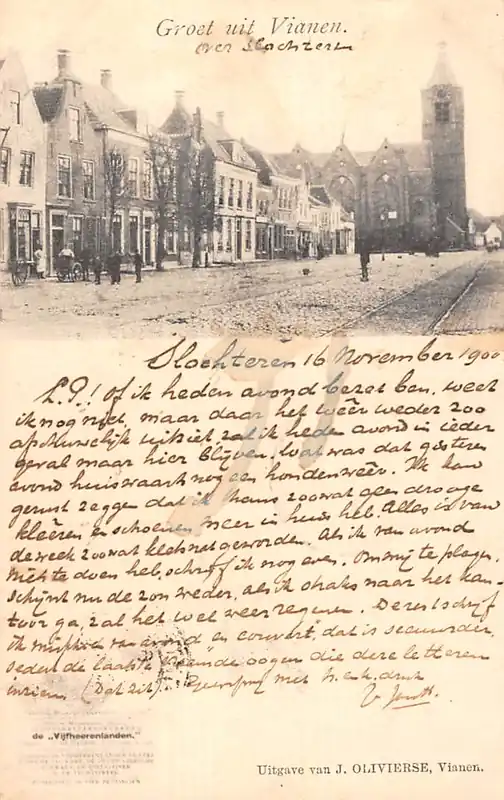 Groet uit Vianen.
over Slochteren
Slochteren 16 November 1900
L.P.! Of ik heden avond bezet ben, weet
ik nog niet, maar daar het weêr weder zoo
afschuwelijk uitziet, zal ik heden avond in ieder
geval maar hier blijven. Wat was dat gisteren
avond huiswaarts nog een hondenweêr. Ik kan
gerust zeggen dat ik thans zoowat geen drooge
kleêren en schoenen meer in huis heb. Alles is van
de week zoowat kledsnat geworden. Als ik van avond
niets te doen heb, schrijf ik nog even. Om mij te plagen,
schijnt nu de zon weder, als ik straks naar het kan-
toor ga, zal het wel weer regenen. Deze schrijf
ik misschien van avond en couvert, dat is secuurder,
zeden de laatste vreemde oogen die deze letteren
inzien. (Dat zit) met h.e.k. druk
de „Vijfheerenlanden."
Uitgave van J. OLIVIERSE, Vianen.